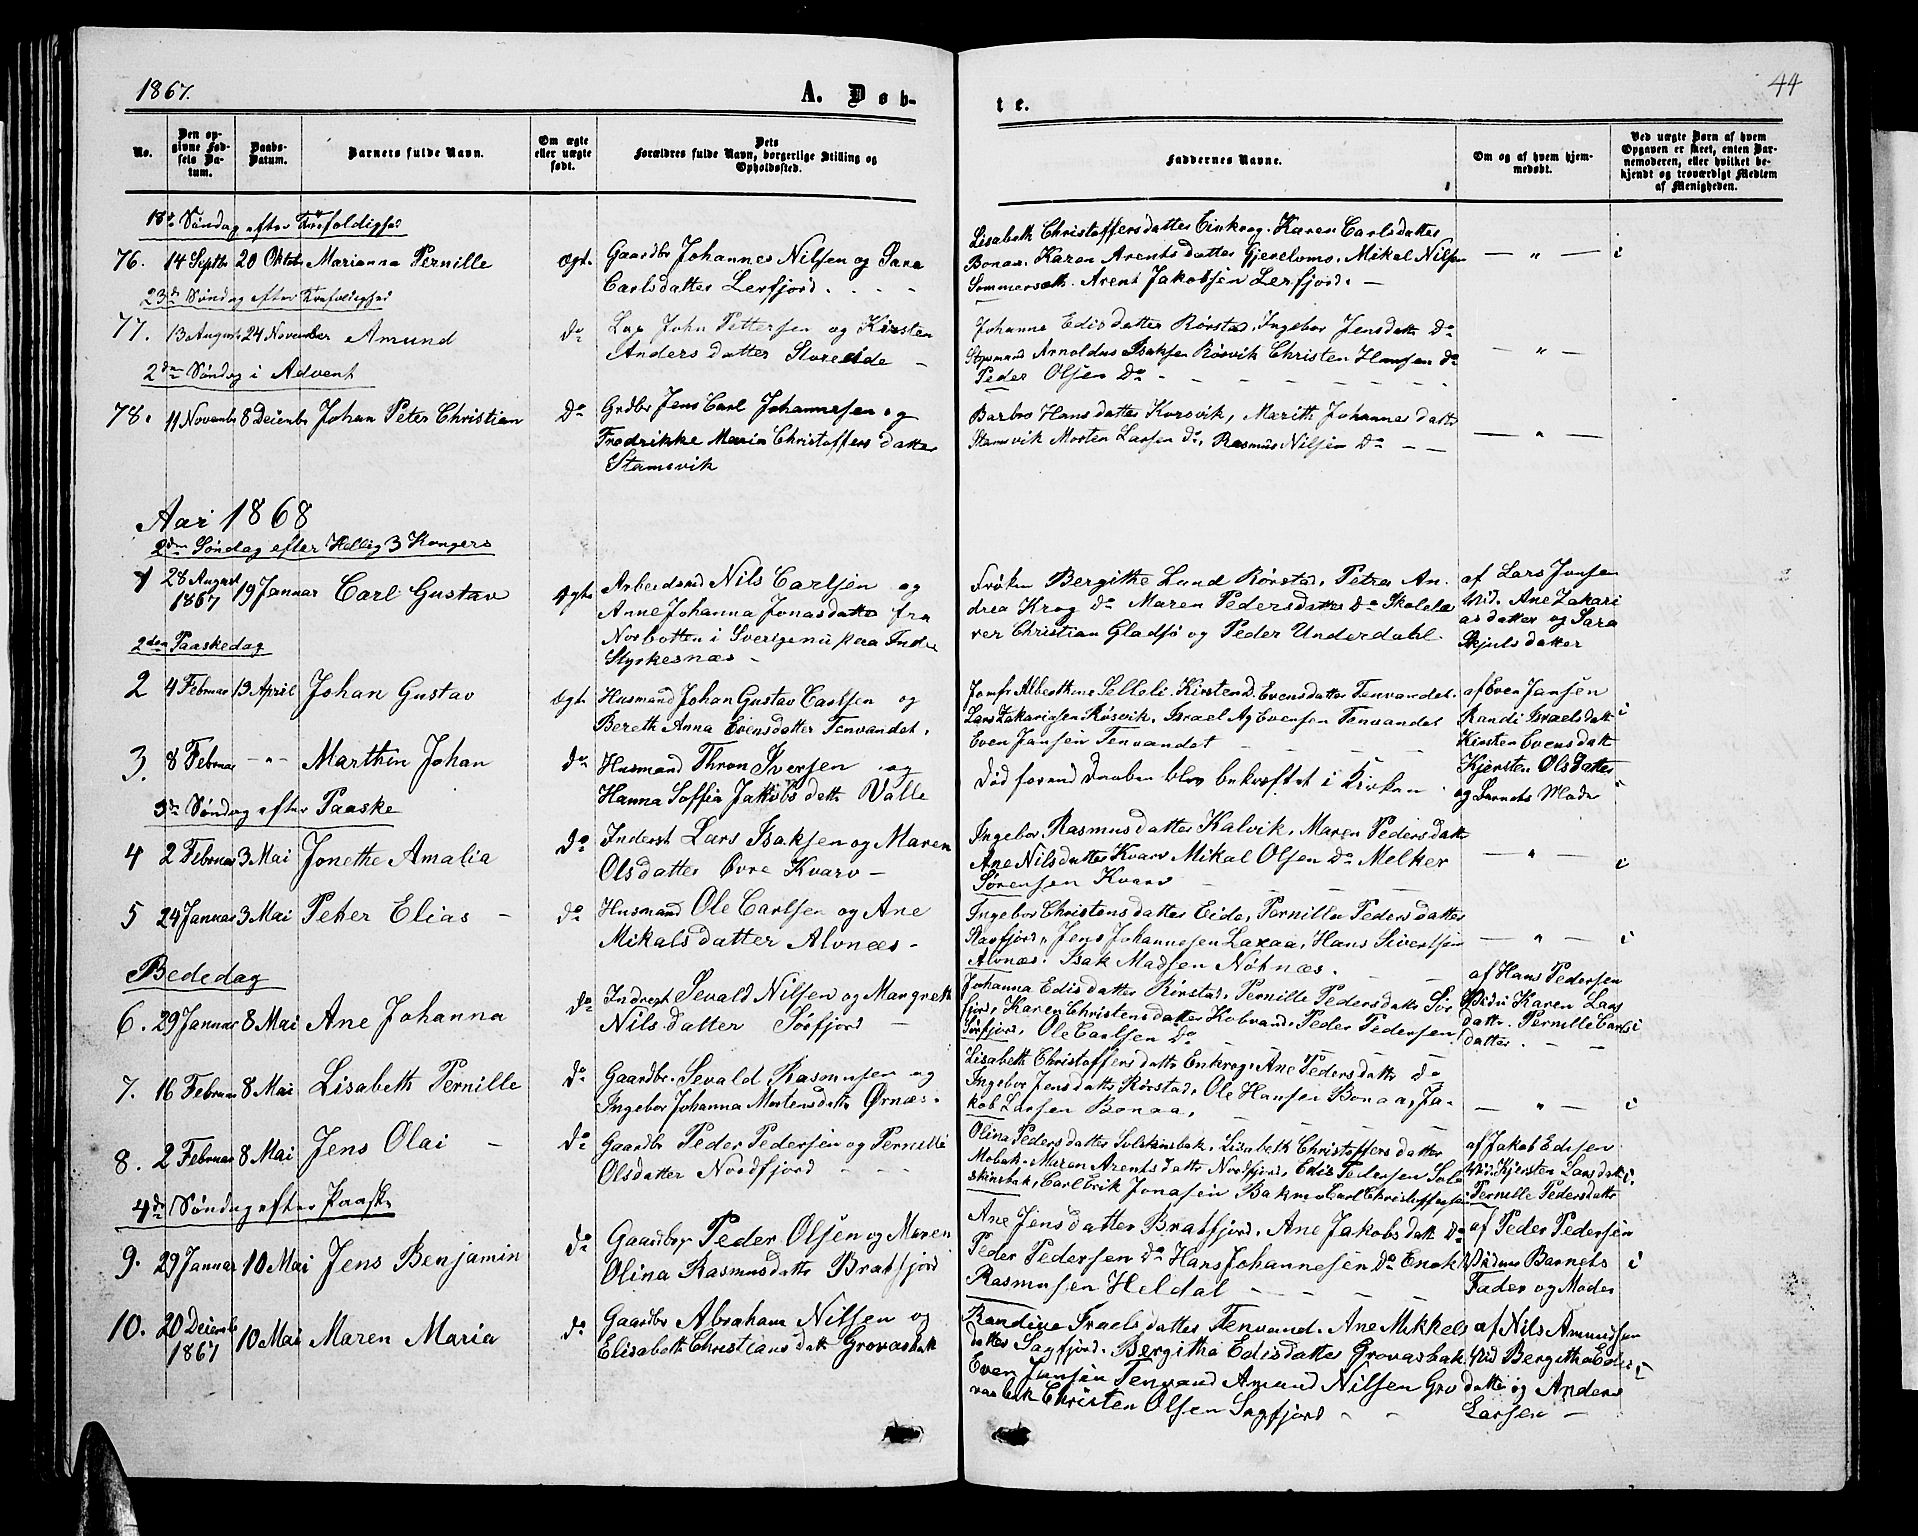 1867.
A. Døb-
te.
44
No.
Den op-
givne Fød-
sels Da-
tum.
Daabs-
Datum.
Barnets fulde Navn.
Om ægte
eller uægte
født.
Dets
Forældres fulde Navn, borgerlige Stilling og
Opholdssted.
Faddernes Navne.
Om og af hvem hjem-
medøbt.
Ved uægte Børn af hvem
Opgaven er skeet, enten Bar-
nemoderen, eller hvilket be-
kjendt og troværdigt Medlem
af Menigheden.
18de Søndag efter Trefoldighed
76. 14 Septbr 20 Oktob Marianna Pernille
ægt.
Gaardbr Johannes Nilsen og Sara
Carlsdatter Lerfjord . - - -
Lisabeth Christoffersdatter Einkrog. Karen Carlsdatter
Bonaa. Karen Arentsdatter Gjerelvmo. Mikal Nilsen
Sommersæth. Arent Jakobsen Lerfjord. -
— " — i
23de Søndag efter Trefoldighed
77. 13 August 24 November Amund
Do
Lap John Pettersen og Kirsten
Andersdatter Storeide -
Johanna Edisdatter Rørstad, Ingebor Jensdatt Do
Arnoldus Isaksen Røsvik Christen Hansen Do
Peder Olsen Do - - -
— " —
2den Søndag i Advent
78. 11 Novembr 8 Deïembr Johan Peter Christian
Do
Grdbr Jens Carl Johannesen og
Fredrikke Maria Christoffersdatter
Stamsvik
Barbro Hansdatter Korsvik, Marith Johannesdatt
Stamsvik Morten Larsen Do, Rasmus Nilsen Do - -
— " —
Aar 1868
2den Søndag efter Hellig 3 Kongers
1 28 August
1867 19 Januar Carl Gustav
ægt.
Arbeidsmd Nils Carlsen og
Anne Johanna Jonasdatter fra
Norbotten i Sverige nu paa Indre
Styrkesnæs -
Frøken Bergithe Lund Rørstad, Petra An-
drea Krog Do Maren Pedersdatter Do Skolelæ
rer Christian Gladsø og Peder Underdahl.
af Lars Jonsen
Vid. Ane Zakari
asdatter og Sara
Skjulsdatter
2den Paaskedag
2 4 Februar 13 April Johan Gustav
ægt.
Husmand Johan Gustav Carlsen og
Bereth Anna Evensdatter Tenvandet.
Jomfr Alberthine Sellæli. Kirsten D. Evensdatter Tenvandet.
Lars Zakariasen Røsvik. Israel Aj Evensen Tenvandet
Even Jansen Tenvandet - - -
af Even Jansen
Randi Israelsdatt
Kirsten Evensdatt
i
3. 8 Februar - " - Marthin Johan
Do
Husmand Thron Iversen og
Hanna Soffia Jakobsdatt Valle
Død forend Daaben blev bekræftet i Kirken.
Kjersten Olsdatter
og Barnets Moder
3de Søndag efter Paaske
4 2 Februar 3 Mai Jonethe Amalia
Do
Inderst Lars Isaksen og Maren
Olsdatter Øvre Kvarv -
Ingebor Rasmusdatter Kalvik. Maren Pedersdatt
Ane Nilsdatter Kvarv Mikal Olsen Do Melker
Sørensen Kvarv - - -
— " — i
5 24 Januar 3 Mai Peter Elias -
Do
Husmand Ole Carlsen og Ane
Mikalsdatter Alvnæs -
Ingebor Christensdatter Eide, Pernille Pedersdatter
Ravfjord, Jens Johannesen Laxaa, Hans Sivertsen
Alvnæs. Isak Madsen Nøtnæs. - -
— " — i
Bededag
6. 29 Januar 8 Mai Ane Johanna
Do
Indrgt Sevald Nilsen og Margreth
Nilsdatter Sørfjord -
Johanna Edisdatter Rørstad, Pernille Pedersdatt Sør
fjord, Karen Christensdatter Kobvand. Peder Pedersen
Sørfjord, Ole Carlsen Do - - -
af Hans Pedersen
Vidn Karen Lars
datt. Pernille Carls
datter. - -
i
7. 16 Februar 8 Mai Lisabeth Pernille
Do
Gaardbr. Sevald Rasmusen og
Ingebor Johanna Mortensdatt Ørnæs.
Lisabeth Christoffersdatt Enkrog. Ane Pedersdatt Do
Ingebor Jensdatt Rørstad, Ole Hansen Bonaa, Ja-
kob Larsen Bonaa, - - -
— " — i
8. 2 Februar 8 Mai Jens Olai -
Do
Gaardbr Peder Pedersen og Pernille
Olsdatter Nordfjord - - -
Olina Pedersdatter Solskinsbak. Lisabeth Christoffersdatter
Mobak. Maren Arentsdatt Nordfjord. Edis Pedersen Sol
skinsbak, Carl Erik Jonasen Bakmo Carl Christoffersen
af Jakob Edisen
Vid. Kjersten Larsdatt
Pernille Pedersdatt
i.
4de Søndag efter Paaske
9. 29 Januar 10 Mai Jens Benjamin
Do
Gaardbgr Peder Olsen og Maren
Olina Rasmusdatt Bratfjord
Ane Jensdatter Bratfjord. Ane Jakobsdatt Do
Peder Pedersen Do Hans Johannesen Do Enok
Rasmusen Heldal - - -
af Peder Pedersen
Vidner Barnets
Fader og Moder
i
10. 20 Deïembr
1867 10 Mai Maren Maria
Do
Gaardbr Abraham Nilsen og
Elisabeth Christiansdatt Grovasbak
Randine Israelsdatter Tenvand. Ane Mikkels
datter Sagfjord. Bergitha Edisdatter Grovasbak
Even Jansen Tenvand Amund Nilsen Gro
vasbak Christen Olsen Sagfjord - -
af Nils Amundsen
Vid Bergitha Edis
datt og Anders
Larsen -
i